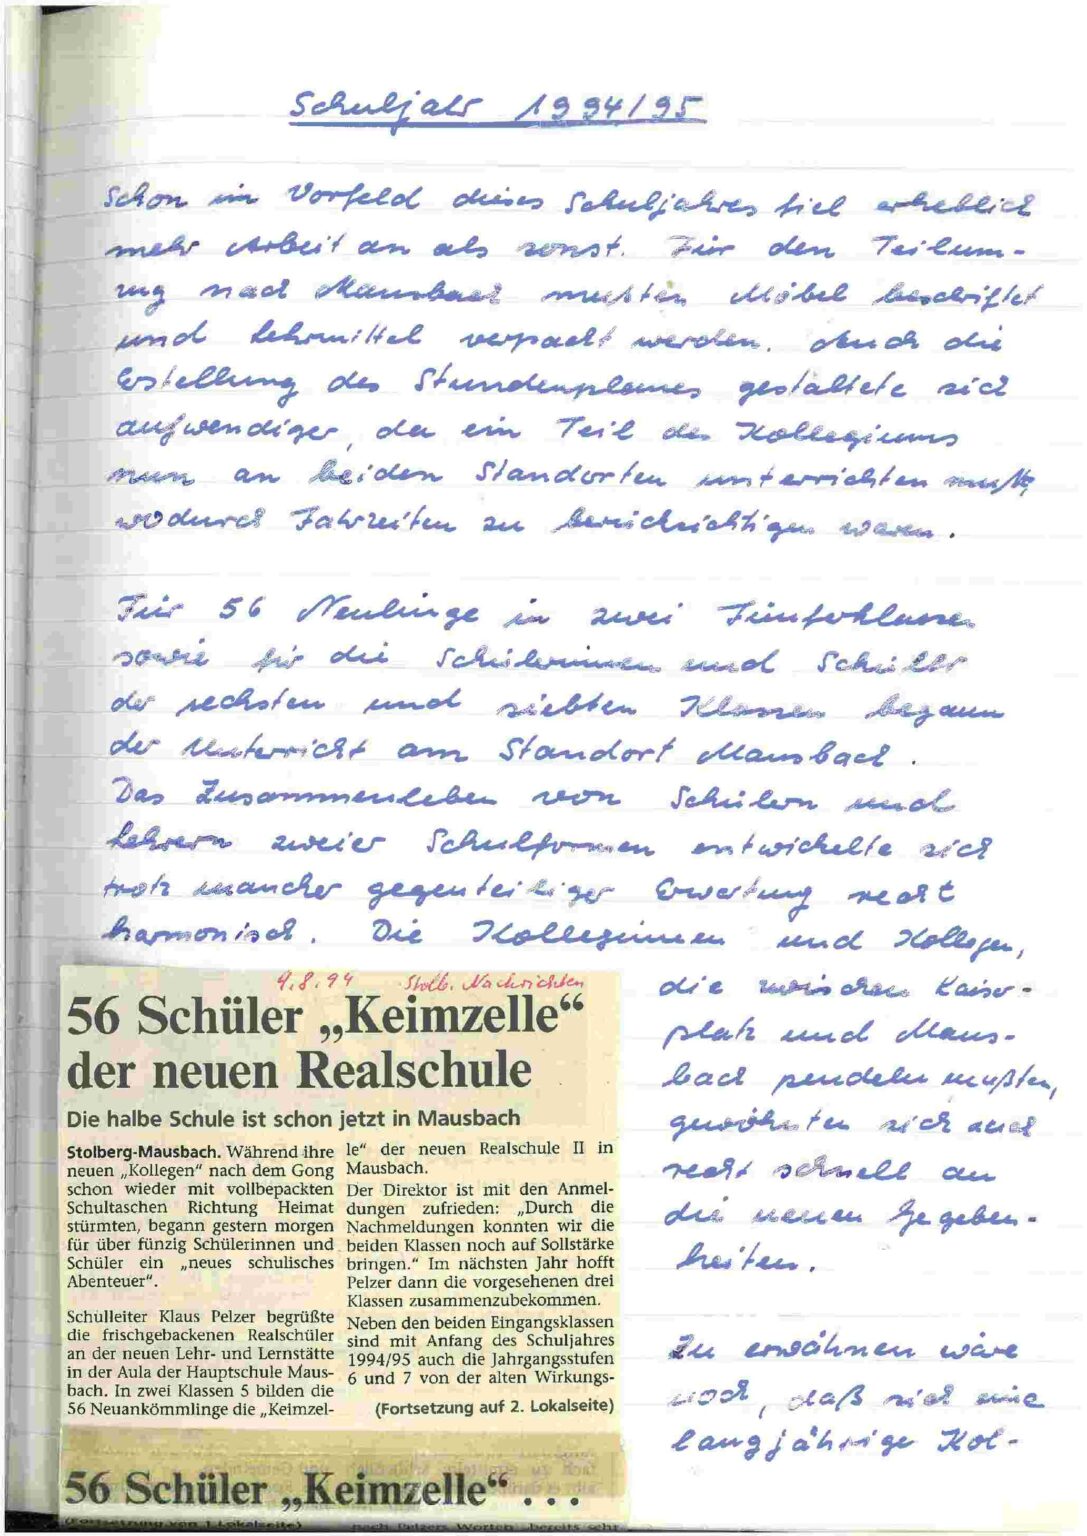 Schuljahr 1994/95
Schon im Vorfeld dieses Schuljahres fiel erheblich
mehr Arbeit an als sonst. Für den Teilum-
zug nach Mausbach mußten Möbel beschriftet
und Lehrmittel verpackt werden. Auch die
Erstellung des Stundenplanes gestaltete sich
aufwendiger, da ein Teil des Kollegiums
nun an beiden Standorten unterrichten mußte,
wodurch Fahrzeiten zu berücksichtigen waren.
Für 56 Neulinge in zwei Fünferklassen
sowie für die Schülerinnen und Schüler
der sechsten und siebten Klassen begann
der Unterricht am Standort Mausbach.
Das Zusammenleben von Schülern und
Lehrern zweier Schulformen entwickelte sich
trotz mancher gegenteiliger Erwartung recht
harmonisch. Die Kolleginnen und Kollegen,
die zwischen Kaiser-
platz und Maus-
bach pendeln mußten,
gewöhnten sich auch
recht schnell an
die neuen Gegeben-
heiten.
Zu erwähnen wäre
noch, daß sich eine
langjährige Kol-
9.8.94 Stolb. Nachrichten
56 Schüler „Keimzelle“
der neuen Realschule
Die halbe Schule ist schon jetzt in Mausbach
Stolberg-Mausbach. Während ihre
neuen „Kollegen“ nach dem Gong
schon wieder mit vollbepackten
Schultaschen Richtung Heimat
stürmten, begann gestern morgen
für über fünzig Schülerinnen und
Schüler ein „neues schulisches
Abenteuer“.
Schulleiter Klaus Pelzer begrüßte
die frischgebackenen Realschüler
an der neuen Lehr- und Lernstätte
in der Aula der Hauptschule Maus-
bach. In zwei Klassen 5 bilden die
56 Neuankömmlinge die „Keimzel-
le“ der neuen Realschule II in
Mausbach.
Der Direktor ist mit den Anmel-
dungen zufrieden: „Durch die
Nachmeldungen konnten wir die
beiden Klassen noch auf Sollstärke
bringen.“ Im nächsten Jahr hofft
Pelzer dann die vorgesehenen drei
Klassen zusammenzubekommen.
Neben den beiden Eingangsklassen
sind mit Anfang des Schuljahres
1994/95 auch die Jahrgangsstufen
6 und 7 von der alten Wirkungs-
(Fortsetzung auf 2. Lokalseite)
56 Schüler „Keimzelle“ . . .
(Fortsetzung von 1. Lokalseite)